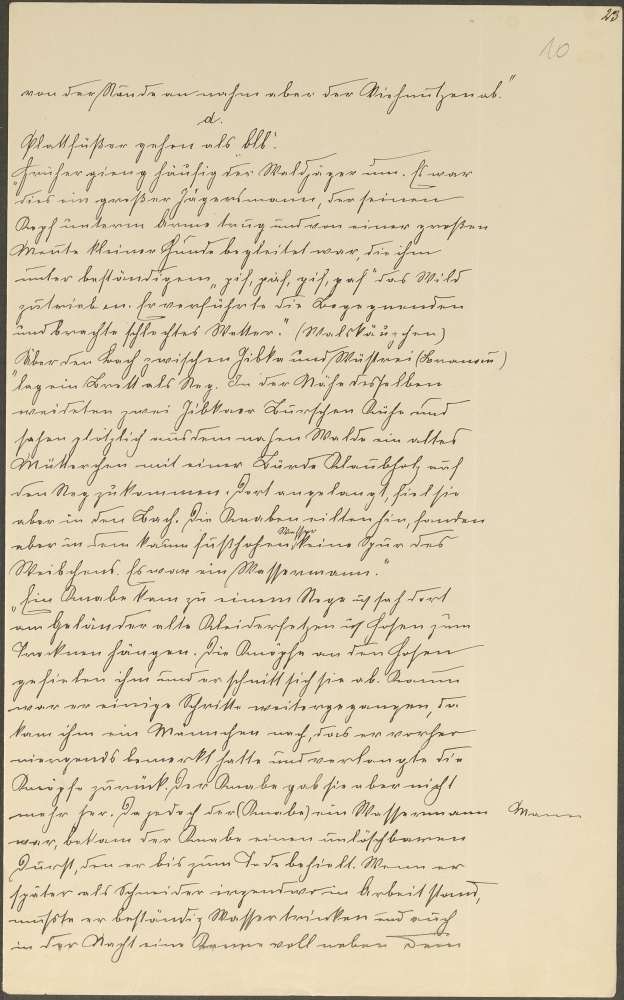 23
10
von der Stunde an nahm aber der Viehnutzen ab."
d.
Plattfüßer gehen als blb.
"Früher gieng häufig der Waldjäger um. Es war
dies ein großer Jägersmann, der seinen
Kopf unterm Arme trug und von einer großen
Meute kleiner Hunde begleitet war, die ihm
unter beständigem „gif, gaf, gif, gaf" das Wild
zutrieben. Er verführte die Begegnenden
und brachte schlechtes Wetter." (Walskäuzchen)
Über den Bach zwischen Zibka und Wüstrei (Branau)
"lag ein Brett als Steg. In der Nähe desselben
weideten zwei Zibkaer Burschen Kühe und
sahen plötzlich aus dem nahen Walde ein altes
Mütterchen mit einer Bürde Klaubholz auf
den Steg zukommen. Dort angelangt, fiel sie
aber in den Bach. Die Knaben eilten hin, fanden
aber in dem kaum fußhohen Wasser keine Spur des
Weibchens. Es war ein Wassermann."
„Ein Knabe kam zu einem Stege u. sah dort
am Geländer alte Kleiderfetzen u. Hosen zum
Trocknen hängen. Die Knöpfe an den Hosen
gefielen ihm und er schnitt sich sie ab. Kaum
war er einige Schritte weitergegangen, da
kam ihm ein Männchen nach, das er vorher
niergends bemerkt hatte und verlangte die
Knöpfe zurück. Der Knabe gab sie aber nicht
mehr her. Da jedoch der (Knabe) ein Wassermann Mann
war, bekam der Knabe einen unlöschbaren
Durst, den er bis zum Tode behielt. Wenn er
später als Schneider irgendwo in Arbeit stand,
mußte er beständig Wasser trinken und auch
in der Nacht eine Kanne voll neben dem